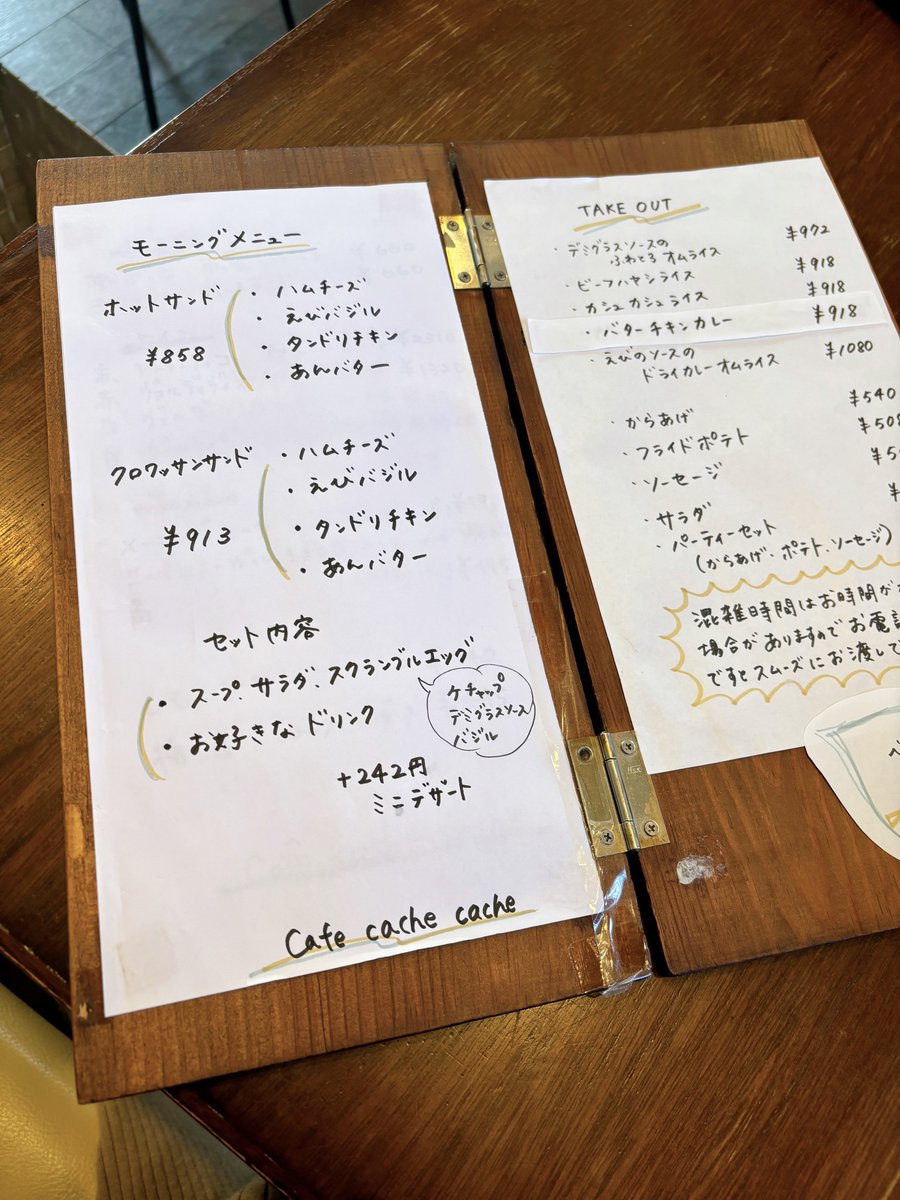 モーニングメニュー
ホットサンド
¥858
・ハムチーズ
・えびバジル
・タンドリチキン
・あんバター
クロワッサンサンド
¥913
・ハムチーズ
・えびバジル
・タンドリチキン
・あんバター
セット内容
・スープ、サラダ、スクランブルエッグ
・お好きなドリンク
ケチャップ
デミグラスソース
バジル
+242円
ミニデザート
Cafe cache cache
TAKE OUT
・デミグラスソースの
ふわとろオムライス ¥972
・ビーフハヤシライス ¥918
・カシュカシュライス ¥918
・バターチキンカレー ¥918
・えびのソースの
ドライカレーオムライス ¥1080
・からあげ ¥540
・フライドポテト ¥508
・ソーセージ ¥5
・サラダ ¥
・パーティーセット
(からあげ、ポテト、ソーセージ)
混雑時間はお時間が
場合がありますのでお電話
ですとスムーズにお渡しで